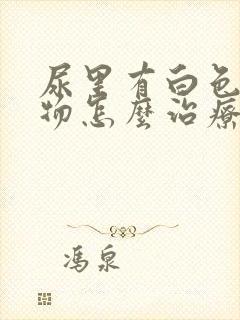 尿里有白色
物怎麼治療
馮泉